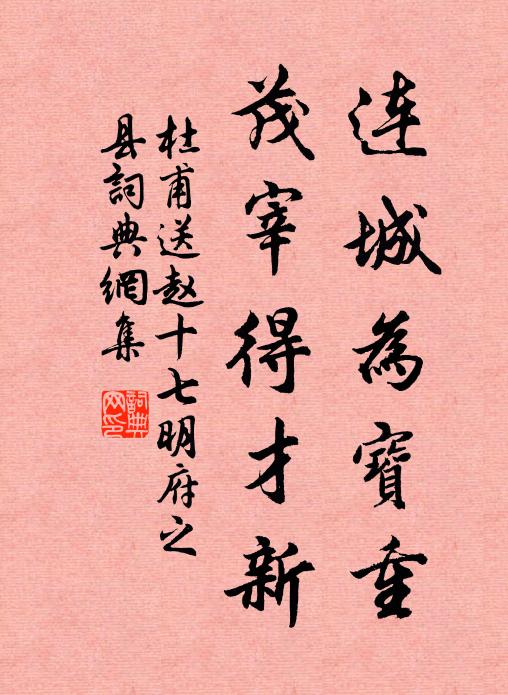 連城為寶重
茂宰得才新
杜甫送赵十七明府之
县詞典網集
詞典
网印